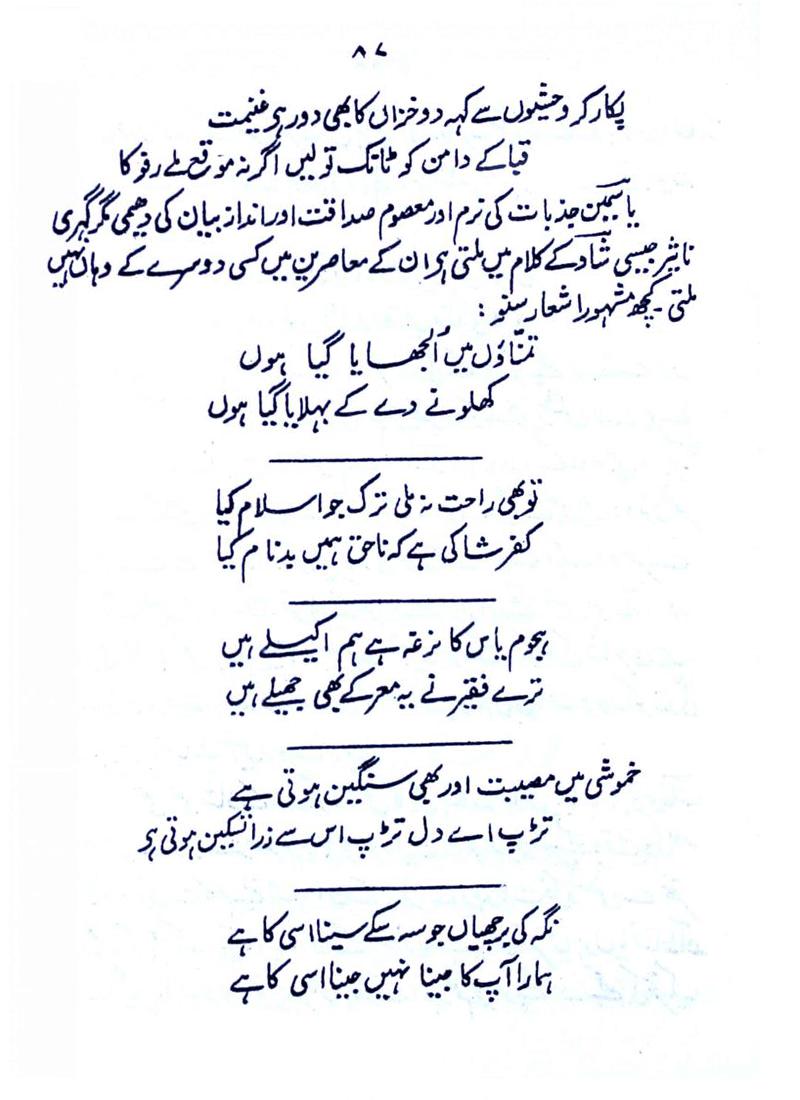 ۸۷
پکار کر وحشیوں سے کہہ دو خزاں کا بھی دور ہو غنیمت
قبا کے دامن کو ٹانک تو لیں اگر نہ موقع ملے رفو کا
یاسمین جذبات کی نرم اور معصوم صداقت اور انداز بیان کی دھیمی مگر گہری
تاثیر جیسی شاد کے کلام میں ملتی ہو ان کے معاصرین میں کسی دوسرے کے وہاں نہیں
ملتی ۔ کچھ مشہور اشعار سنو :
تمنّاؤں میں اُلجھایا گیا ہوں
کھلونے دے کے بہلایا گیا ہوں
تو بھی راحت نہ ملی ترک جو اسلام کیا
کفر شاکی ہے کہ ناحق ہمیں بدنام کیا
ہجوم یاس کا نرغہ ہے ہم اکیلے ہیں
ترے فقیر نے یہ معرکے بھی جھیلے ہیں
خموشی میں مصیبت اور بھی سنگین ہوتی ہے
تڑپ اے دل تڑپ اس سے ذرا تسکین ہوتی ہو
نگہ کی برچھیاں جو سہ سکے سینا اسی کا ہے
ہمارا آپ کا جینا نہیں جینا اسی کا ہے